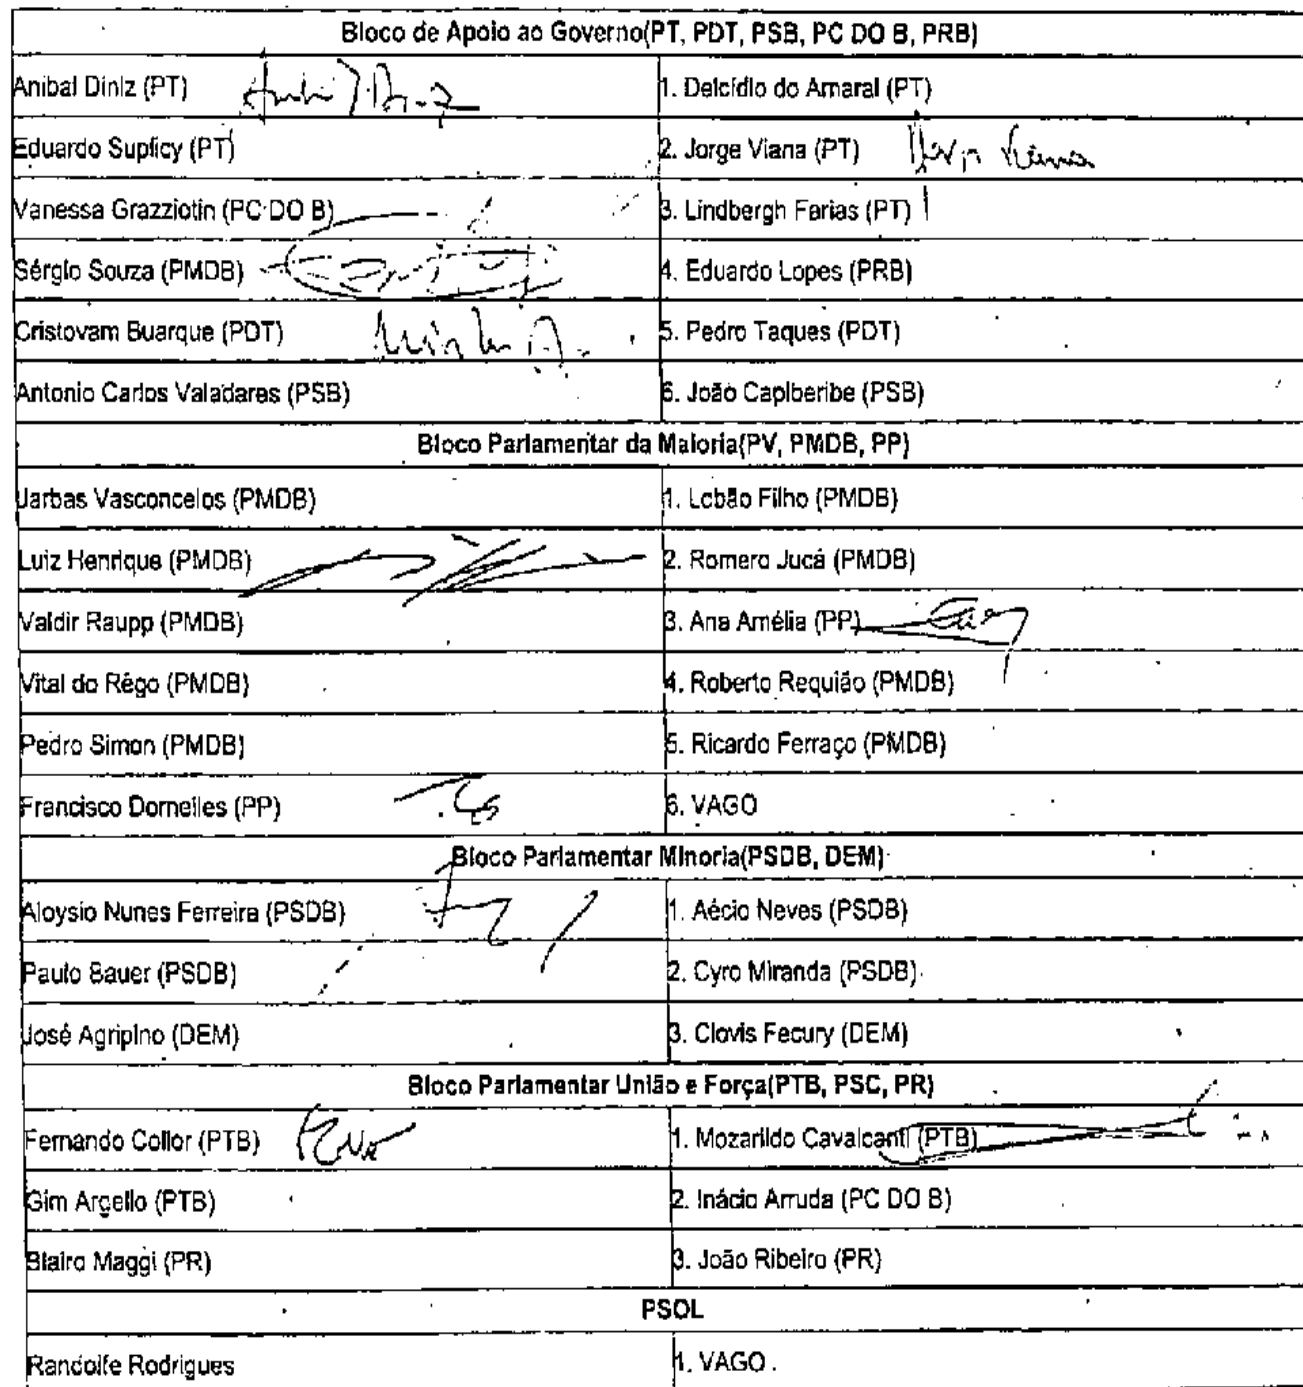 Bloco de Apoio ao Governo(PT, PDT, PSB, PC DO B, PRB)
Anibal Diniz (PT) 1. Delcídio do Amaral (PT)
Eduardo Suplicy (PT) 2. Jorge Viana (PT)
Vanessa Grazziotin (PC DO B) 3. Lindbergh Farias (PT)
Sérgio Souza (PMDB) 4. Eduardo Lopes (PRB)
Cristovam Buarque (PDT) 5. Pedro Taques (PDT)
Antonio Carlos Valadares (PSB) 6. João Capiberibe (PSB)
Bloco Parlamentar da Maioria(PV, PMDB, PP)
Jarbas Vasconcelos (PMDB) 1. Lobão Filho (PMDB)
Luiz Henrique (PMDB) 2. Romero Jucá (PMDB)
Valdir Raupp (PMDB) 3. Ana Amélia (PP)
Vital do Rêgo (PMDB) 4. Roberto Requião (PMDB)
Pedro Simon (PMDB) 5. Ricardo Ferraço (PMDB)
Francisco Dornelles (PP) 6. VAGO
Bloco Parlamentar Minoria(PSDB, DEM)
Aloysio Nunes Ferreira (PSDB) 1. Aécio Neves (PSDB)
Paulo Bauer (PSDB) 2. Cyro Miranda (PSDB)
José Agripino (DEM) 3. Clovis Fecury (DEM)
Bloco Parlamentar União e Força(PTB, PSC, PR)
Fernando Collor (PTB) 1. Mozarildo Cavalcanti (PTB)
Gim Argello (PTB) 2. Inácio Arruda (PC DO B)
Blairo Maggi (PR) 3. João Ribeiro (PR)
PSOL
Randolfe Rodrigues 1. VAGO